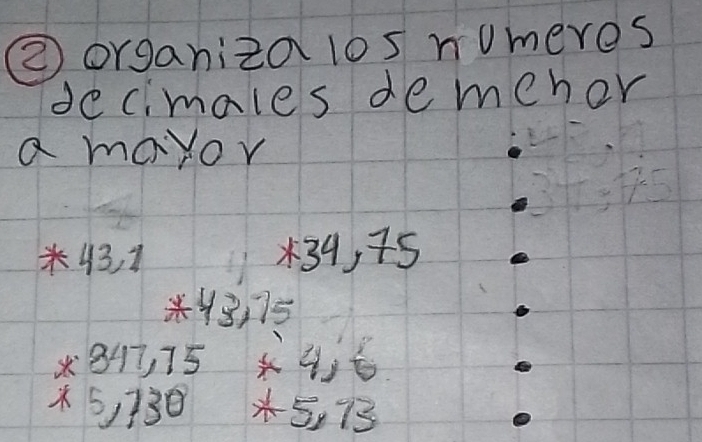 ② organiza los numeros
decimales de menor
a mayor
* 43,1 * 34,75
* 43,75
* 347,75 * 4,6
* 5,730 * 5,73